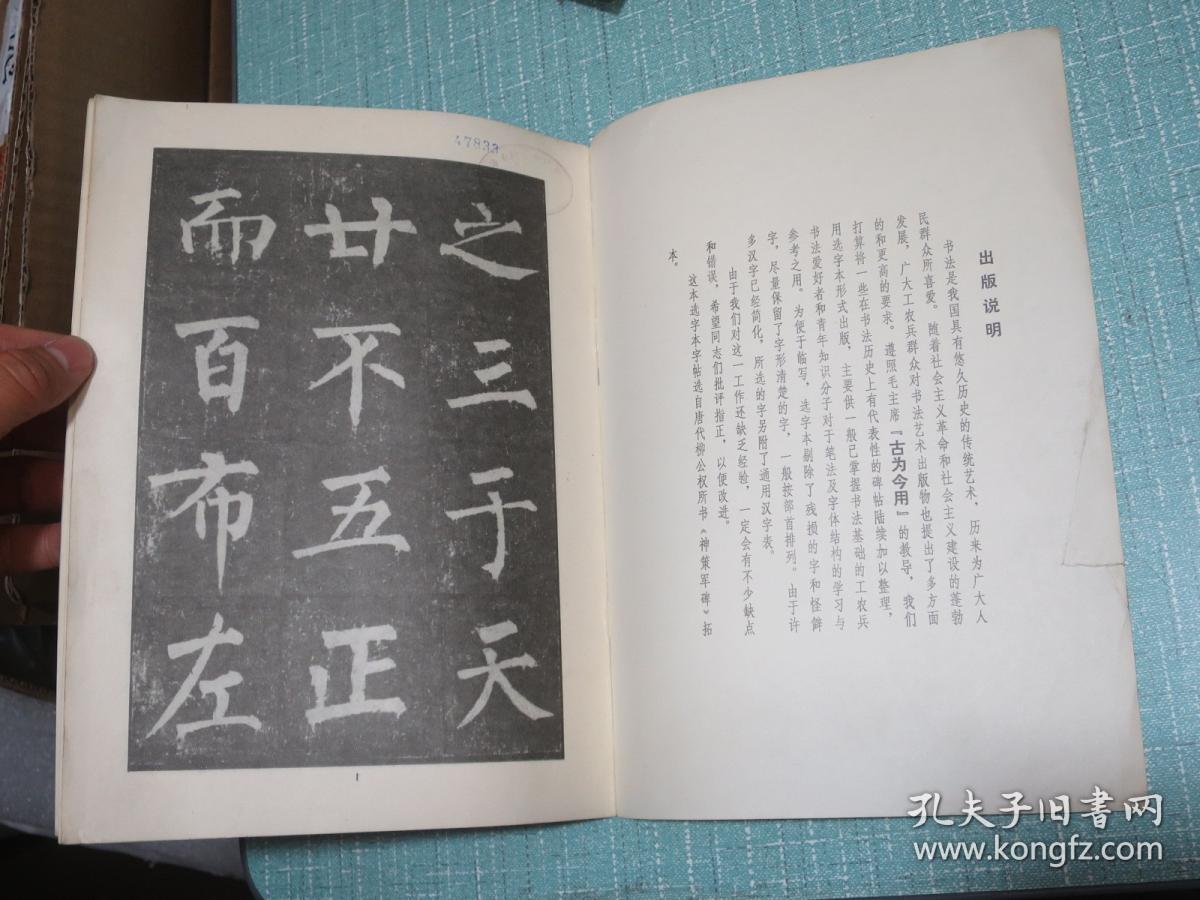 出版说明
书法是我国具有悠久历史的传统艺术，历来为广大人
民群众所喜爱。随着社会主义革命和社会主义建设的蓬勃
发展，广大工农兵群众对书法艺术出版物也提出了多方面
的和更高的要求。遵照毛主席『古为今用』的教导，我们
打算将一些在书法历史上有代表性的碑帖陆续加以整理，
用选字本形式出版，主要供一般已掌握书法基础的工农兵
书法爱好者和青年知识分子对于笔法及字体结构的学习与
参考之用。为便于临写，选字本剔除了残损的字和怪僻
字，尽量保留了字形清楚的字，一般按部首排列。由于许
多汉字已经简化，所选的字另附了通用汉字表。
由于我们对这一工作还缺乏经验，一定会有不少缺点
和错误，希望同志们批评指正，以便改进。
这本选字本字帖选自唐代柳公权所书《神策军碑》拓
本。
之三于天
廿不五正
而百布左
1
47833
孔夫子旧书网
www.kongfz.com